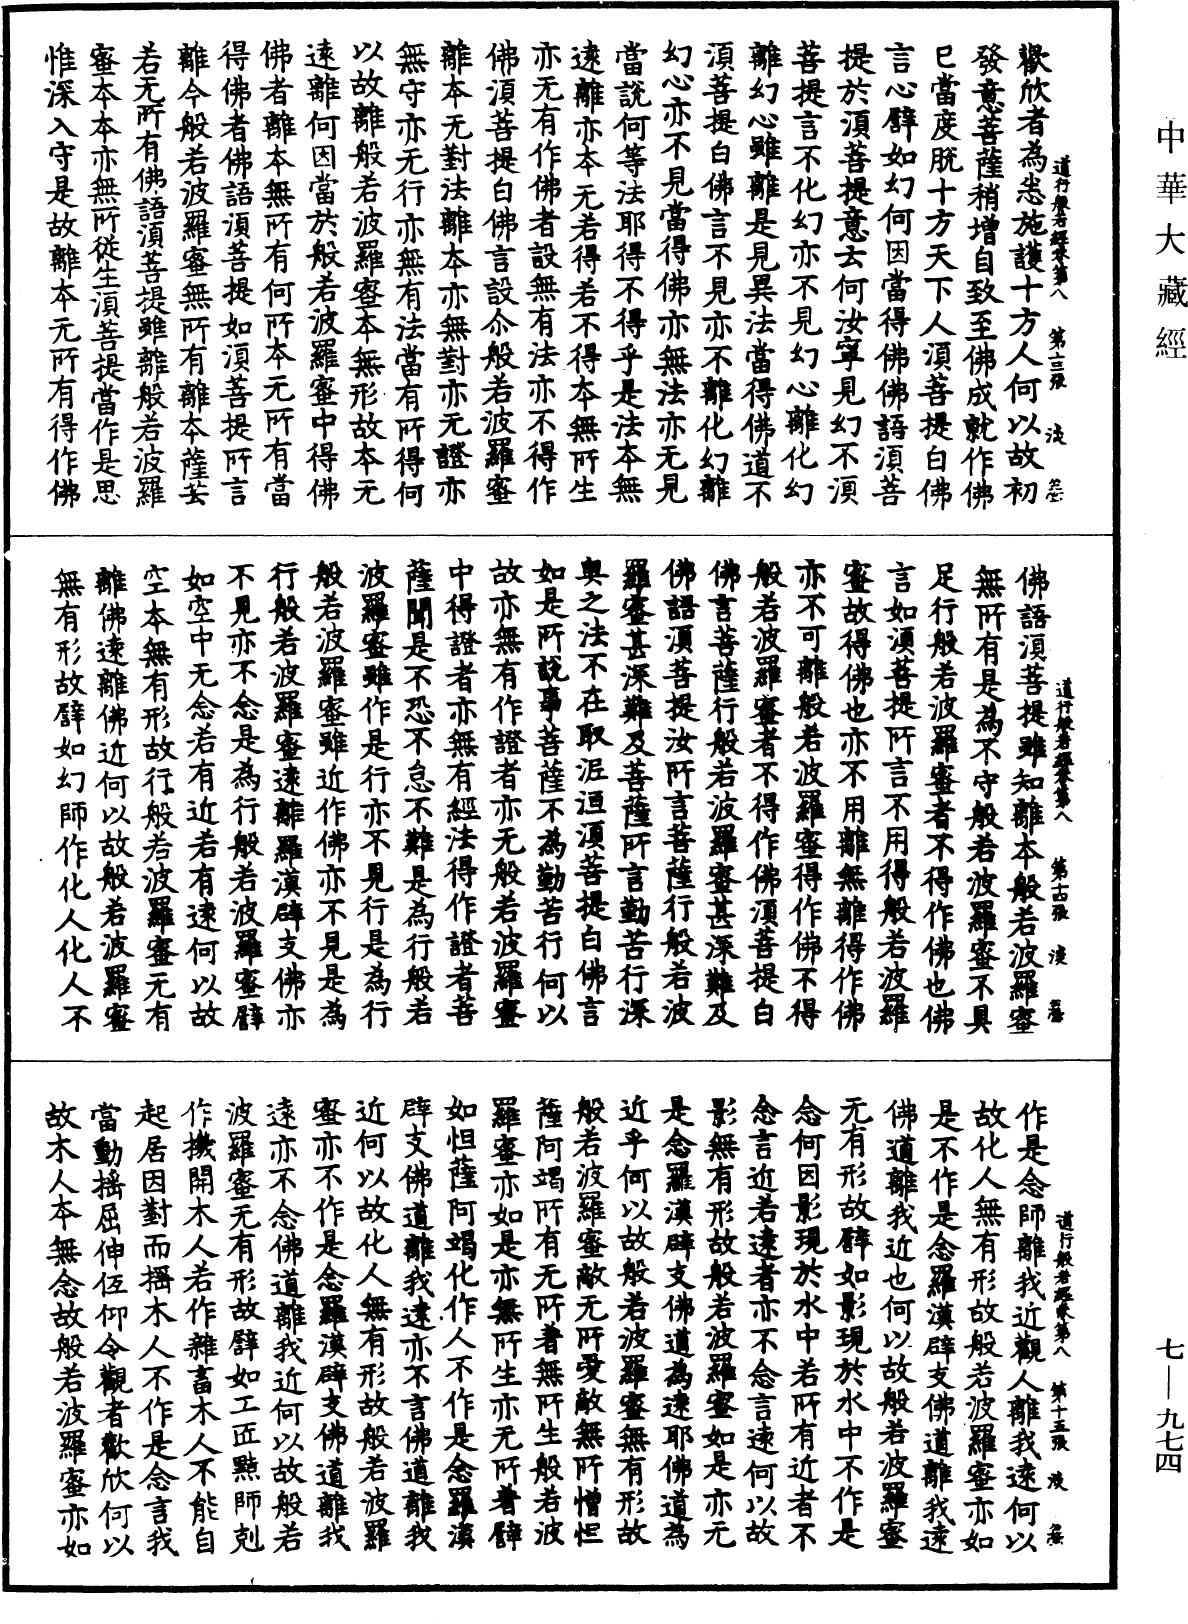 中華大藏經
歡欣者為恙施護十方人何以故初
發意菩薩稍增自致至佛成就作佛
巳當度脫十方天下人湏菩提白佛
言心譬如幻何因當得佛佛語湏菩
提於湏菩提意云何汝寧見幻不湏
菩提言不化幻亦不見幻心離化幻
離幻心雖離是見異法當得佛道不
湏菩提白佛言不見亦不離化幻離
幻心亦不見當得佛亦無法亦无見
當說何等法耶得不得乎是法本無
遠離亦本无若得若不得本無所生
亦无有作佛者設無有法亦不得作
佛湏菩提白佛言設尒般若波羅蜜
離本无對法離本亦無對亦无證亦
無守亦无行亦無有法當有所得何
以故離般若波羅蜜本無形故本无
遠離何因當於般若波羅蜜中得佛
佛者離本無所有何所本无所有當
得佛者佛語湏菩提如湏菩提所言
離今般若波羅蜜無所有離本薩芸
若无所有佛語湏菩提雖離般若波羅
蜜本本亦無所從生湏菩提當作是思
惟深入守是故離本无所有得作佛
道行般若經卷第八 第十三張 淡
佛語湏菩提雖知離本般若波羅蜜
無所有是為不守般若波羅蜜不具
足行般若波羅蜜者不得作佛也佛
言如湏菩提所言不用得般若波羅
蜜故得佛也亦不用離無離得作佛
亦不可離般若波羅蜜得作佛不得
般若波羅蜜者不得作佛湏菩提白
佛言菩薩行般若波羅蜜甚深難及
佛語湏菩提汝所言菩薩行般若波
羅蜜甚深難及菩薩所言勤苦行深
奧之法不在取泥洹湏菩提白佛言
如是所說事菩薩不為勤苦行何以
故亦無有作證者亦无般若波羅蜜
中得證者亦無有經法得作證者菩
薩聞是不恐不怠不難是為行般若
波羅蜜雖作是行亦不見行是為行
般若波羅蜜雖近作佛亦不見是為
行般若波羅蜜遠離羅漢辟支佛亦
不見亦不念是為行般若波羅蜜譬
如空中无念若有近若有遠何以故
空本無有形故行般若波羅蜜无有
離佛遠離佛近何以故般若波羅蜜
無有形故譬如幻師作化人化人不
道行般若經卷第八 第十四張 淡
作是念師離我近觀人離我遠何以
故化人無有形故般若波羅蜜亦如
是不作是念羅漢辟支佛道離我遠
佛道離我近也何以故般若波羅蜜
无有形故譬如影現於水中不作是
念何因影現於水中若所有近者不
念言近若遠者亦不念言遠何以故
影無有形故般若波羅蜜如是亦无
是念羅漢辟支佛道為遠耶佛道為
近乎何以故般若波羅蜜無有形故
般若波羅蜜敵无所愛敵無所憎怛
薩阿竭所有无所著無所生般若波
羅蜜亦如是亦無所生亦无所著譬
如怛薩阿竭化作人不作是念羅漢
辟支佛道離我遠亦不言佛道離我
近何以故化人無有形故般若波羅
蜜亦不作是念羅漢辟支佛道離我
遠亦不念佛道離我近何以故般若
波羅蜜无有形故譬如工匠黠師剋
作機關木人若作雜畜木人不能自
起居因對而搖木人不作是念言我
當動搖屈伸伍仰令觀者歡欣何以
故木人本無念故般若波羅蜜亦如
道行般若經卷第八 第十五張 淡
七—九七四